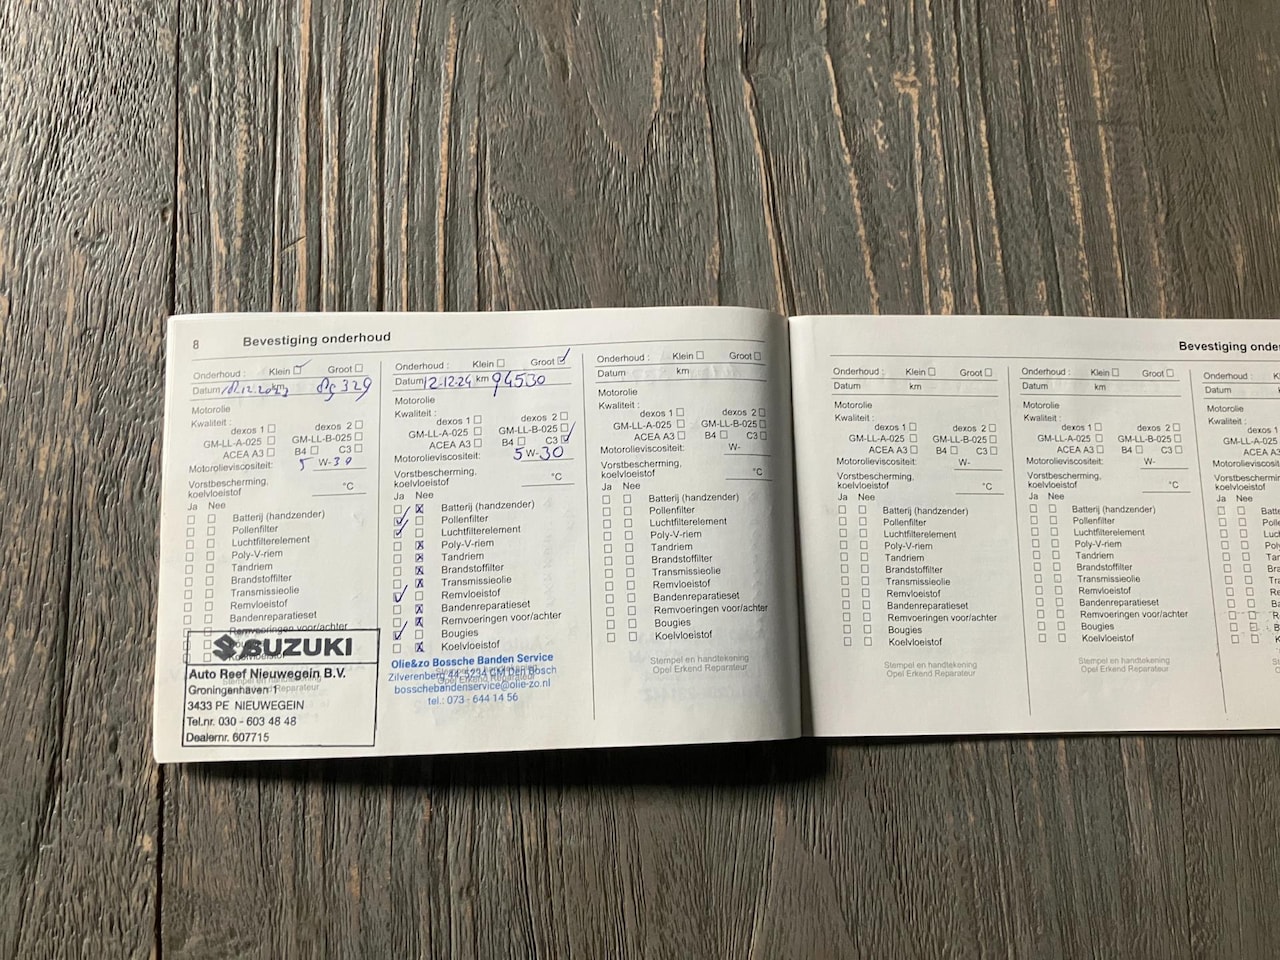 8 Bevestiging onderhoud
Onderhoud : Klein Groot
Datum km 329
Motorolie
Kwaliteit :
dexos 1 dexos 2
GM-LL-A-025 GM-LL-B-025
ACEA A3 B4 C3
Motorolieviscositeit: 5 W-30
Vorstbescherming,
koelvloeistof °C
Ja Nee
Batterij (handzender)
Pollenfilter
Luchtfilterelement
Poly-V-riem
Tandriem
Brandstoffilter
Transmissieolie
Remvloeistof
Bandenreparatieset
Remvoeringen voor/achter
SUZUKI
Auto Reef Nieuwegein B.V.
Groningenhaven 1
3433 PE NIEUWEGEIN
Tel.nr. 030 - 603 48 48
Dealernr. 607715
Onderhoud : Klein Groot
Datum 12.12.24 km 94530
Motorolie
Kwaliteit :
dexos 1 dexos 2
GM-LL-A-025 GM-LL-B-025
ACEA A3 B4 C3
Motorolieviscositeit: 5 W-30
Vorstbescherming,
koelvloeistof °C
Ja Nee
Batterij (handzender)
Pollenfilter
Luchtfilterelement
Poly-V-riem
Tandriem
Brandstoffilter
Transmissieolie
Remvloeistof
Bandenreparatieset
Remvoeringen voor/achter
Bougies
Koelvloeistof
Olie&zo Bossche Banden Service
Zilverenberg 44, 5234 GM Den Bosch
bosschebandenservice@olie-zo.nl
tel.: 073 - 644 14 56
Onderhoud : Klein Groot
Datum km
Motorolie
Kwaliteit :
dexos 1 dexos 2
GM-LL-A-025 GM-LL-B-025
ACEA A3 B4 C3
Motorolieviscositeit: W-
Vorstbescherming,
koelvloeistof °C
Ja Nee
Batterij (handzender)
Pollenfilter
Luchtfilterelement
Poly-V-riem
Tandriem
Brandstoffilter
Transmissieolie
Remvloeistof
Bandenreparatieset
Remvoeringen voor/achter
Bougies
Koelvloeistof
Stempel en handtekening
Opel Erkend Reparateur
Bevestiging onder
Onderhoud : Klein Groot
Datum km
Motorolie
Kwaliteit :
dexos 1 dexos 2
GM-LL-A-025 GM-LL-B-025
ACEA A3 B4 C3
Motorolieviscositeit: W-
Vorstbescherming,
koelvloeistof °C
Ja Nee
Batterij (handzender)
Pollenfilter
Luchtfilterelement
Poly-V-riem
Tandriem
Brandstoffilter
Transmissieolie
Remvloeistof
Bandenreparatieset
Remvoeringen voor/achter
Bougies
Koelvloeistof
Stempel en handtekening
Opel Erkend Reparateur
Onderhoud : Klein Groot
Datum km
Motorolie
Kwaliteit :
dexos 1 dexos 2
GM-LL-A-025 GM-LL-B-025
ACEA A3 B4 C3
Motorolieviscositeit: W-
Vorstbescherming,
koelvloeistof °C
Ja Nee
Batterij (handzender)
Pollenfilter
Luchtfilterelement
Poly-V-riem
Tandriem
Brandstoffilter
Transmissieolie
Remvloeistof
Bandenreparatieset
Remvoeringen voor/achter
Bougies
Koelvloeistof
Stempel en handtekening
Opel Erkend Reparateur
Onderhoud : K
Datum
Motorolie
Kwaliteit :
dexos 1
GM-LL-A-025
ACEA A3
Motorolieviscositeit:
Vorstbescherming,
koelvloeistof
Ja Nee
Batte
Polle
Luch
Poly-
Tand
Bran
Tran
Rem
Ban
Rem
Bou
Koe